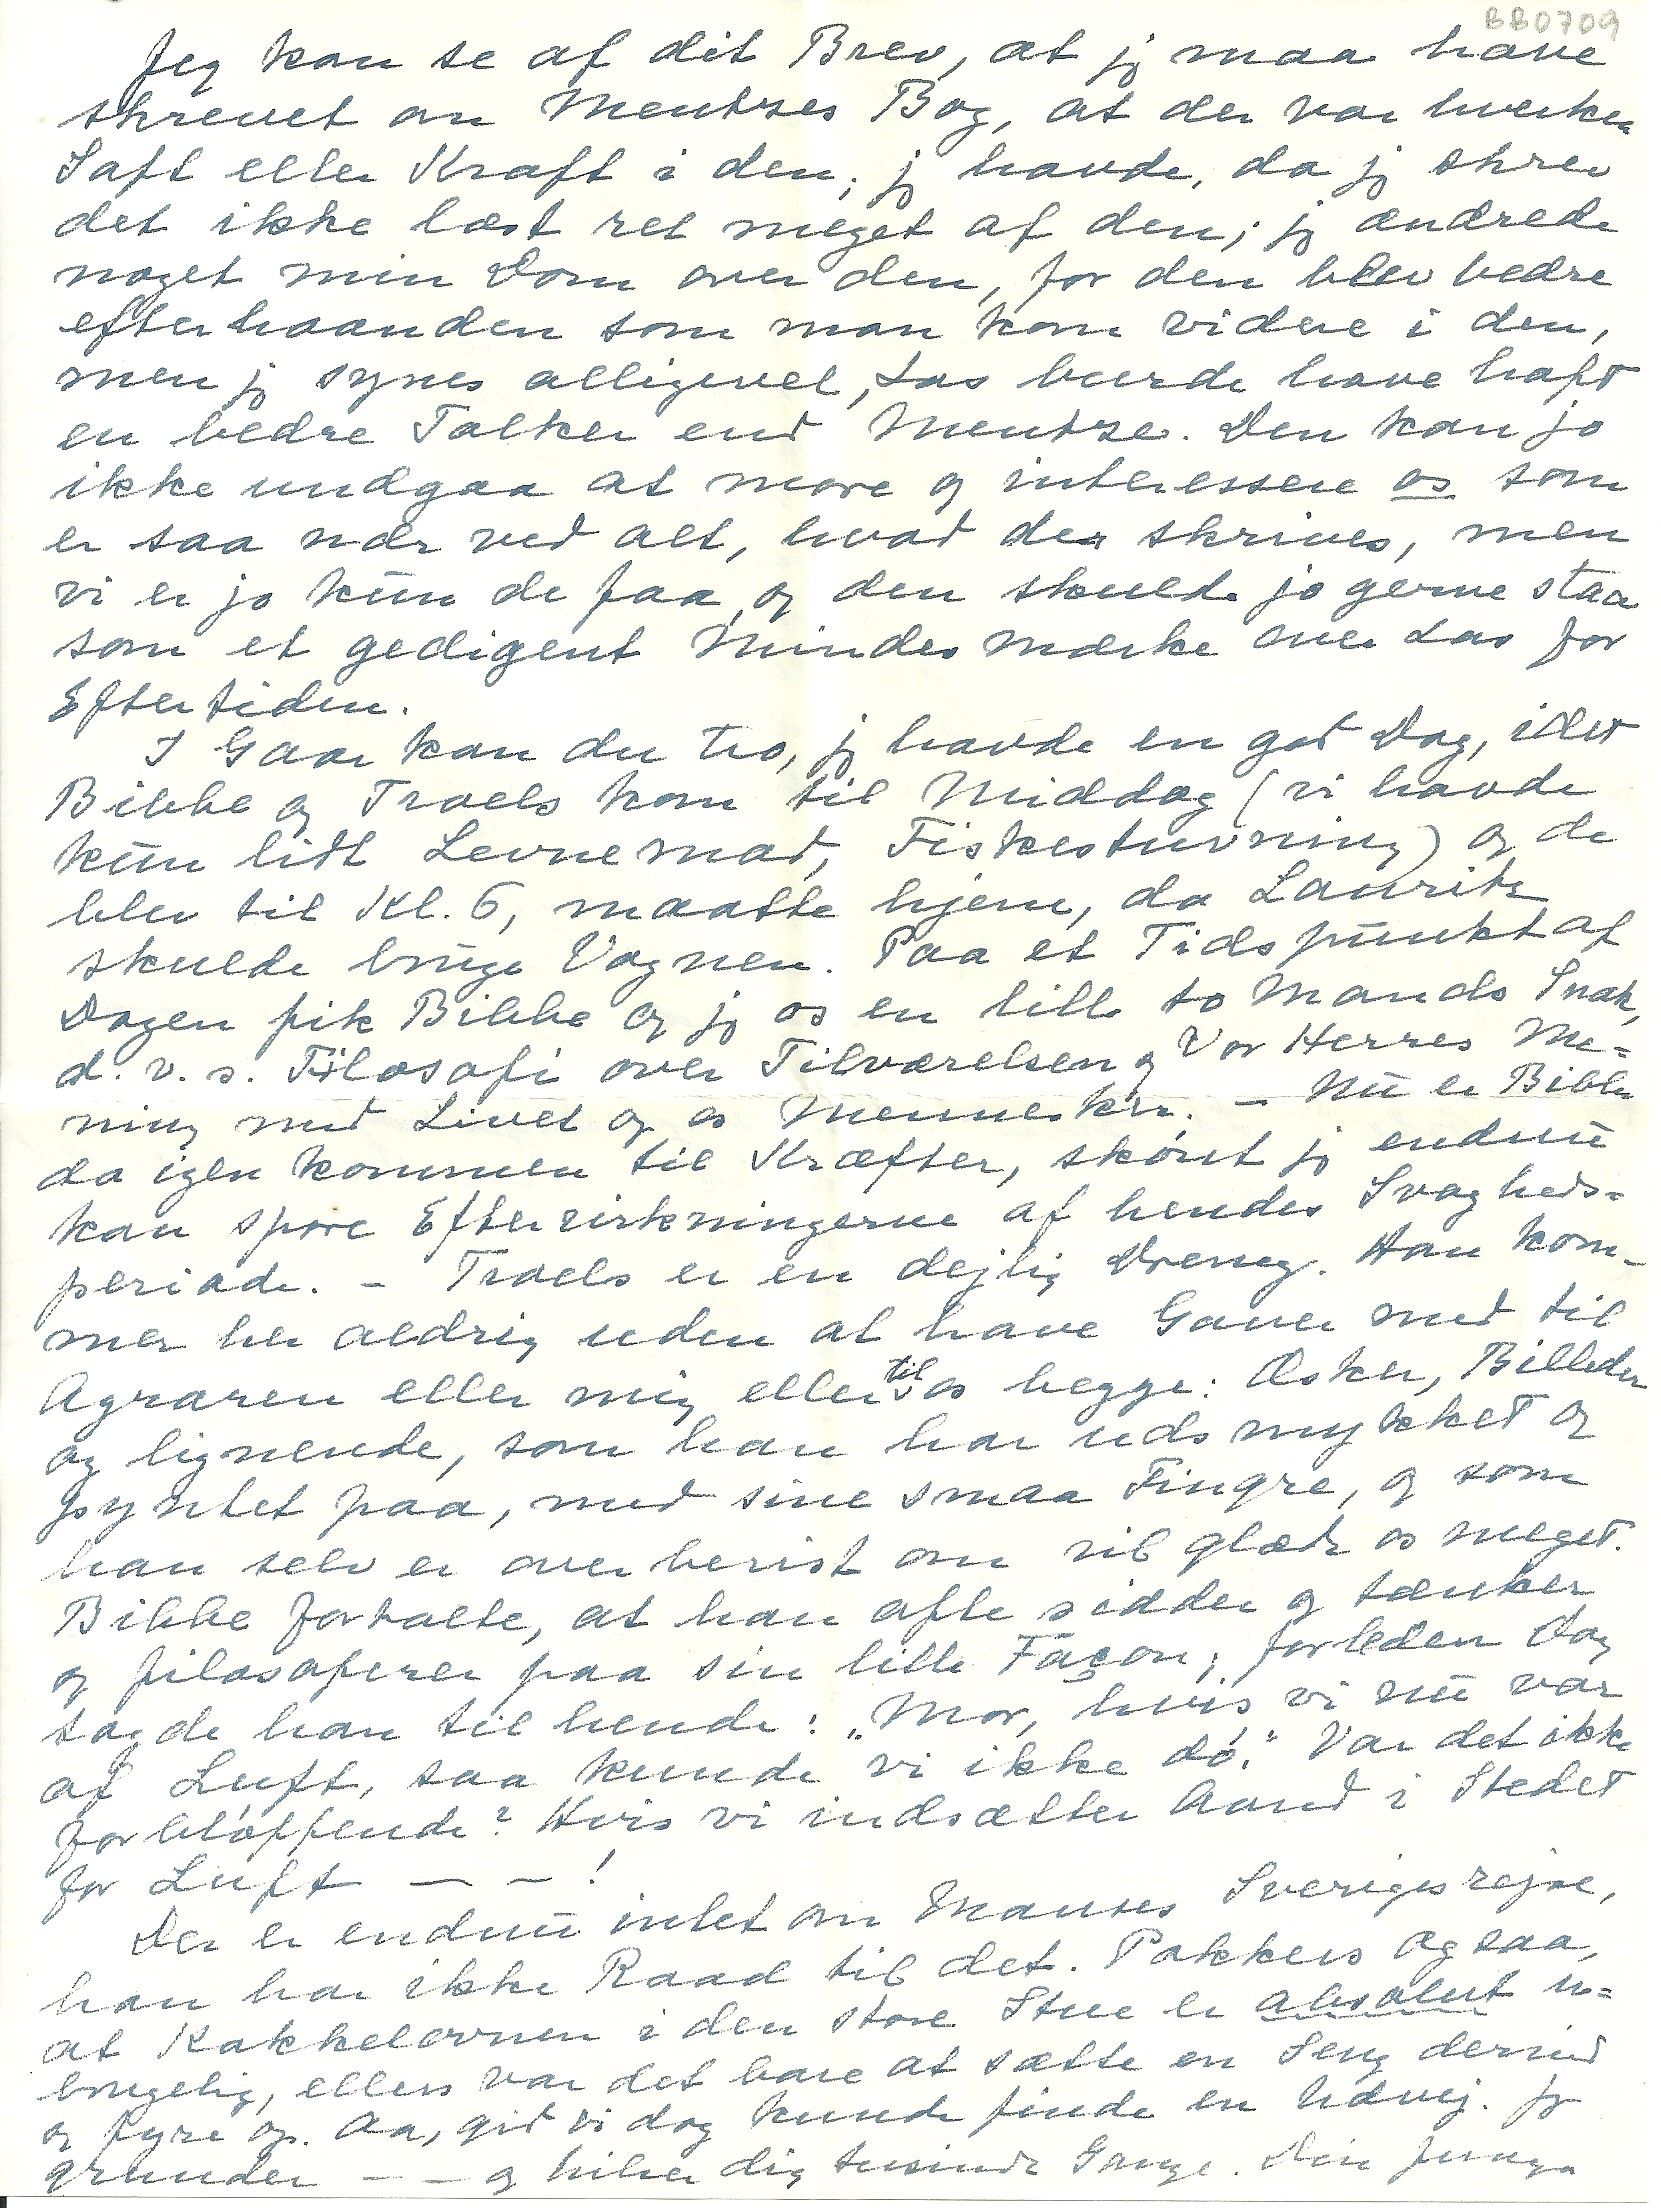 BB0709
Jeg kan se af dit Brev, at jg maa have
skrevet om Mentzes Bog, at der var hverken
Saft eller Kraft i den; jg havde, da jg skrev
det ikke læst ret meget af den; jg ændrede
noget min Dom over den, for den blev bedre
efterhaanden som man kom videre i den,
men jg synes alligevel, Las burde have haft
en bedre Tolker end Mentze. Den kan jo
ikke undgaa at more og interessere os som
er saa nær ved alt, hvad der skrives, men
vi er jo kun de faa, og den skulde jo gerne staa
som et gedigent Mindesmærke over Las for
Eftertiden.
I Gaar kan du tro, jg havde en god Dag, idet
Bibbe og Troels kom til Middag (vi havde
kun lidt Levnemad, Fiskestuvning) og de
blev til Kl. 6, maatte hjem, da Lauritz
skulde bruge Vognen. Paa et Tidspunkt af
Dagen fik Bibbe og jg os en lille to Mands Snak,
d. v. s. Filosofi over Tilværelsen og Vor Herres Me=
ning med Livet og os Mennesker. – Nu er Bibbe
da igen kommen til Kræfter, skønt jg endnu
kan spore Eftervirkningerne af hendes Svagheds=
periode. – Troels er en dejlig Dreng. Han kom-
mer her aldrig uden at have Gaver med til
Agraren eller mig eller til os begge: Æsker, Billeder
og lignende, som han har udsmykket og
pyntet paa, med sine smaa Fingre, og som
han selv er overbevist om vil glæde os meget.
Bibbe fortalte, at han ofte sidder og tænker
og filosoferer paa sin lille Façon; forleden Dag
sagde han til hende: „Mor, hvis vi nu var
af Luft, saa kunde vi ikke dø." Var det ikke
forbløffende? Hvis vi indsætter Aand i Stedet
for Luft – – !
Der er endnu intet om Manses Sverigesrejse,
han har ikke Raad til det. Pokkers ogsaa,
at Kakkelovnen i den store Stue er absolut u=
brugelig, ellers var det bare at sætte en Seng derind
og fyre op. Aa, gid vi dog kunde finde en Udvej. Jg
grunder – – og hilser dig tusinde Gange. Din Junge